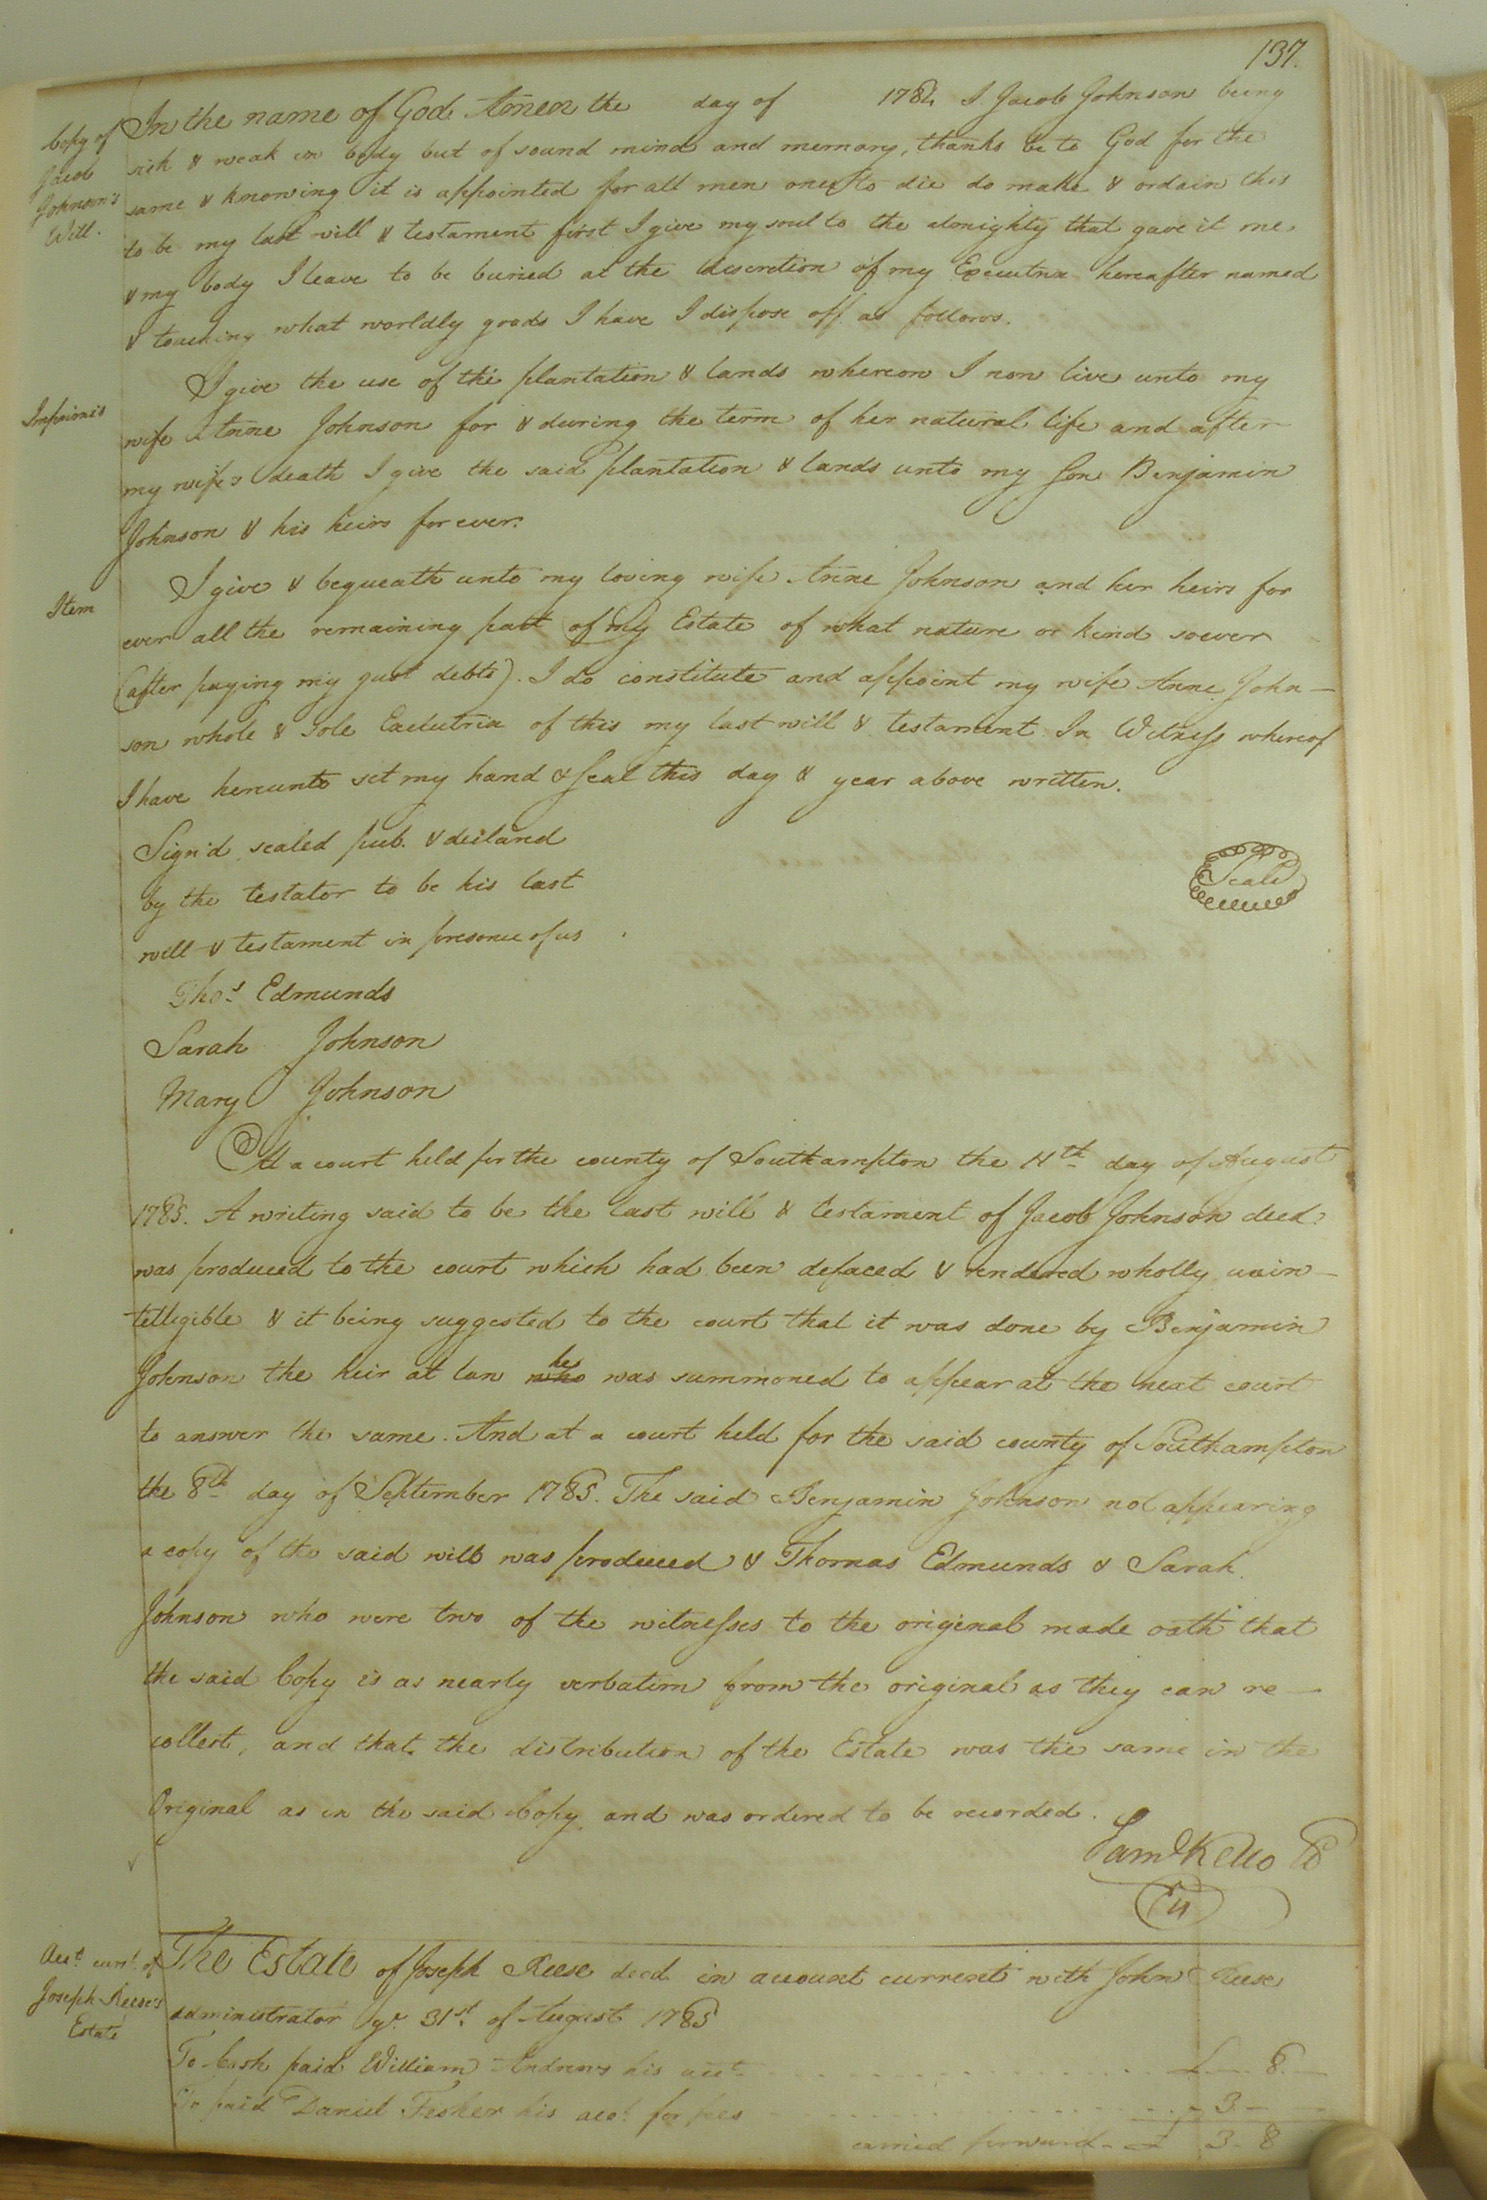 137.
Copy of
Jacob
Johnson's
Will.
In the name of God Amen the day of 1784 I Jacob Johnson being
sick & weak in body but of sound mind and memory, thanks be to God for the
same & knowing it is appointed for all men once to die do make & ordain this
to be my last will & testament first I give my soul to the almighty that gave it me
& my body I leave to be buried at the discretion of my Executrix hereafter named
& touching what worldly goods I have I dispose off as follows.
Imprimis
I give the use of the plantation & lands whereon I now live unto my
wife Anne Johnson for & during the term of her natural life and after
my wife's death I give the said plantation & lands unto my son Benjamin
Johnson & his heirs for ever.
Item
I give & bequeath unto my loving wife Anne Johnson and her heirs for
ever all the remaining part of my Estate of what nature or kind soever
(after paying my just debts). I do constitute and appoint my wife Anne John-
son whole & sole Executrix of this my last will & testament In Witness whereof
I have hereunto set my hand & seal this day & year above written.
Sign'd sealed pub. & declared
by the testator to be his last
will & testament in presence of us
Seal
Thos. Edmunds
Sarah Johnson
Mary Johnson
At a court held for the county of Southampton the 11th day of August
1785. A writing said to be the last will & testament of Jacob Johnson decd.
was produced to the court which had been defaced & rendered wholly unin-
telligible & it being suggested to the court that it was done by Benjamin
Johnson the heir at law who he was summoned to appear at the next court
to answer the same. And at a court held for the said county of Southampton
the 8th day of September 1785. The said Benjamin Johnson not appearing
a copy of the said will was produced & Thomas Edmunds & Sarah
Johnson who were two of the witnesses to the original made oath that
the said Copy is as nearly verbatim from the original as they can re-
collect, and that the distribution of the Estate was the same in the
Original as in the said Copy and was ordered to be recorded.
Saml Kello
Acct. curt. of
Joseph Reese's
Estate
The Estate of Joseph Reese decd. in account current with John Reese
administrator yr. 31st. of August 1785
To Cash paid William Andrews his acct. £ 8
To paid Daniel Fisher his acct. for fees 3
carried forward £ 3. 8